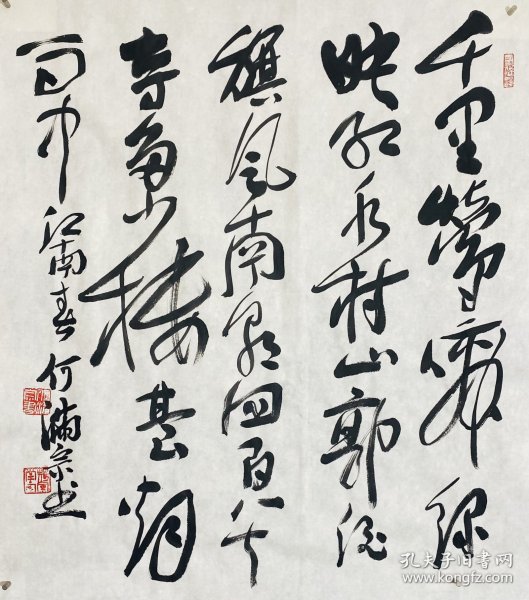 千里莺啼绿
映红水村山郭酒
旗风南朝四百八十
寺多少楼台烟
雨中 江南春 何满宗书
孔夫子旧书网
www.kongfz.com